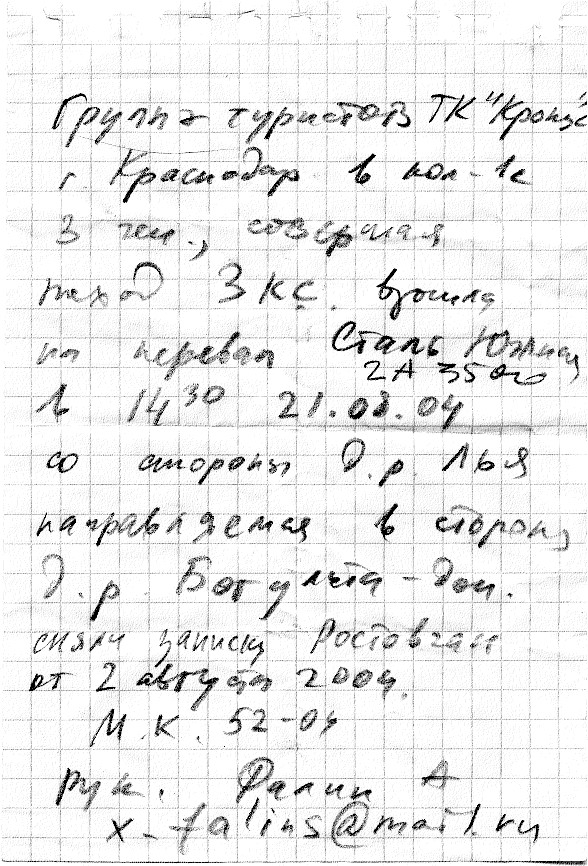 Группа туристов ТК "Кронус"
г Краснодар в кол-ве
3 чел., совершая
поход 3 кс. взошла
на перевал Сталь Южная
2А 3500
в 14 30 21.08.04
со стороны д.р. Лья
направляемся в сторону
д.р Богульта-дон.
сняли записку Ростовчан
от 2 августа 2004.
М.К. 52-04
рук. Фалин А
x-falins@mail.ru